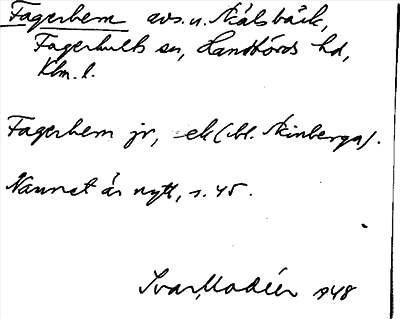 Fagerhem avs. u. Skälsbäck,
Fagerhults sn, Handbörds hd,
Klm. l.
Fagerhem jr, ek (bl. Skinberga).
Namnet är nytt, s. 45.
Ivar Modéer 1948